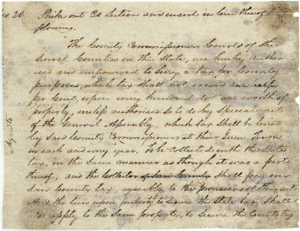 Strike out 20 Section and insert in lieu thereof
following
The County Commissioners Courts of the
several Counties in the State, are hereby author
ised and empowered to levy a tax for County
purposes, which tax shall not exceed one half
per Cent, upon every hundred dollars worth of
property, unless authorised to by special
of the General Assembly, which tax shall be levied
by said County Commissioners at their June term
in each and every year, to be Collected with the State
tax, in the same manner as though it was a part
thereof, and the Collector shall pay over
said County tax, agreeable to the provisions of this act
And the lien upon property to secure the State tax shall
apply to the same property, to secure the County tax